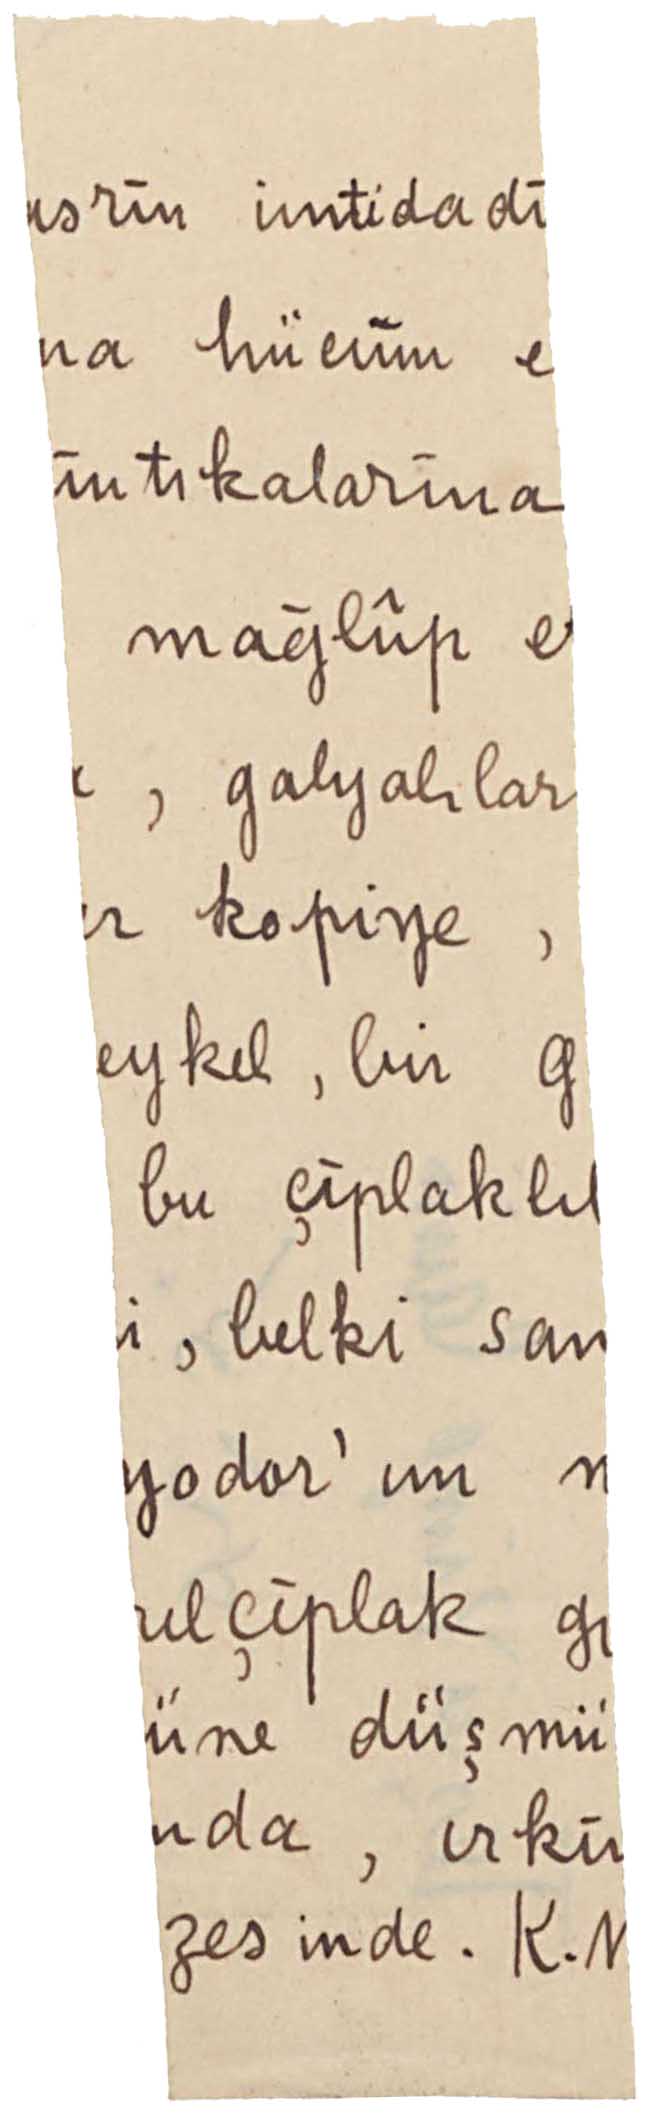 asrīn imtidadī
na hücūm e
īntıkalarīna
mağlûp e
, galyalılar
ır kopiye ,
eykel, bir g
bu çīplaklı
i, belki san
yodor'un n
rılçīplak gı
üne düşmü
nda , ırkīn
zesinde. K.M